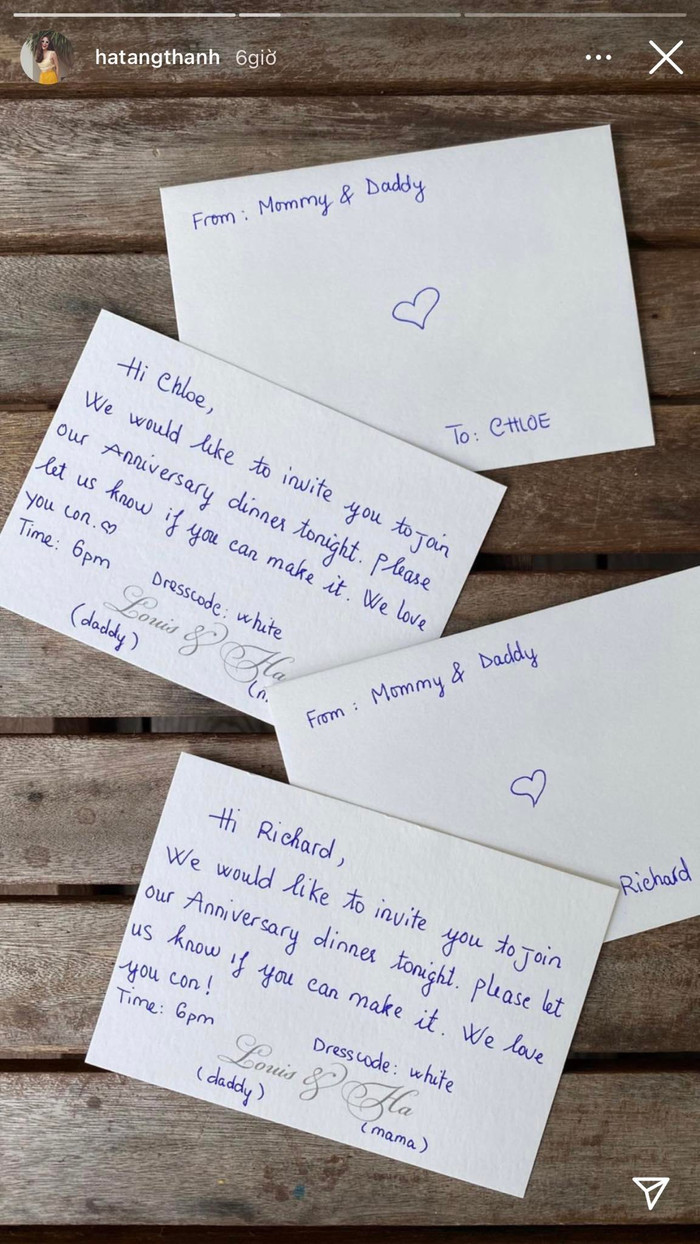 hatangthanh 6giờ
From: Mommy & Daddy
To: CHLOE
Hi Chloe,
We would like to invite you to join
our Anniversary dinner tonight. Please
let us know if you can make it. We love
you con.♡
Time: 6pm
Dresscode: white
Louis & Ha
(daddy)
From: Mommy & Daddy
Richard
Hi Richard,
We would like to invite you to join
our Anniversary dinner tonight. Please let
us know if you can make it. We love
you con!
Time: 6pm
Dresscode: white
Louis & Ha
(daddy)
(mama)